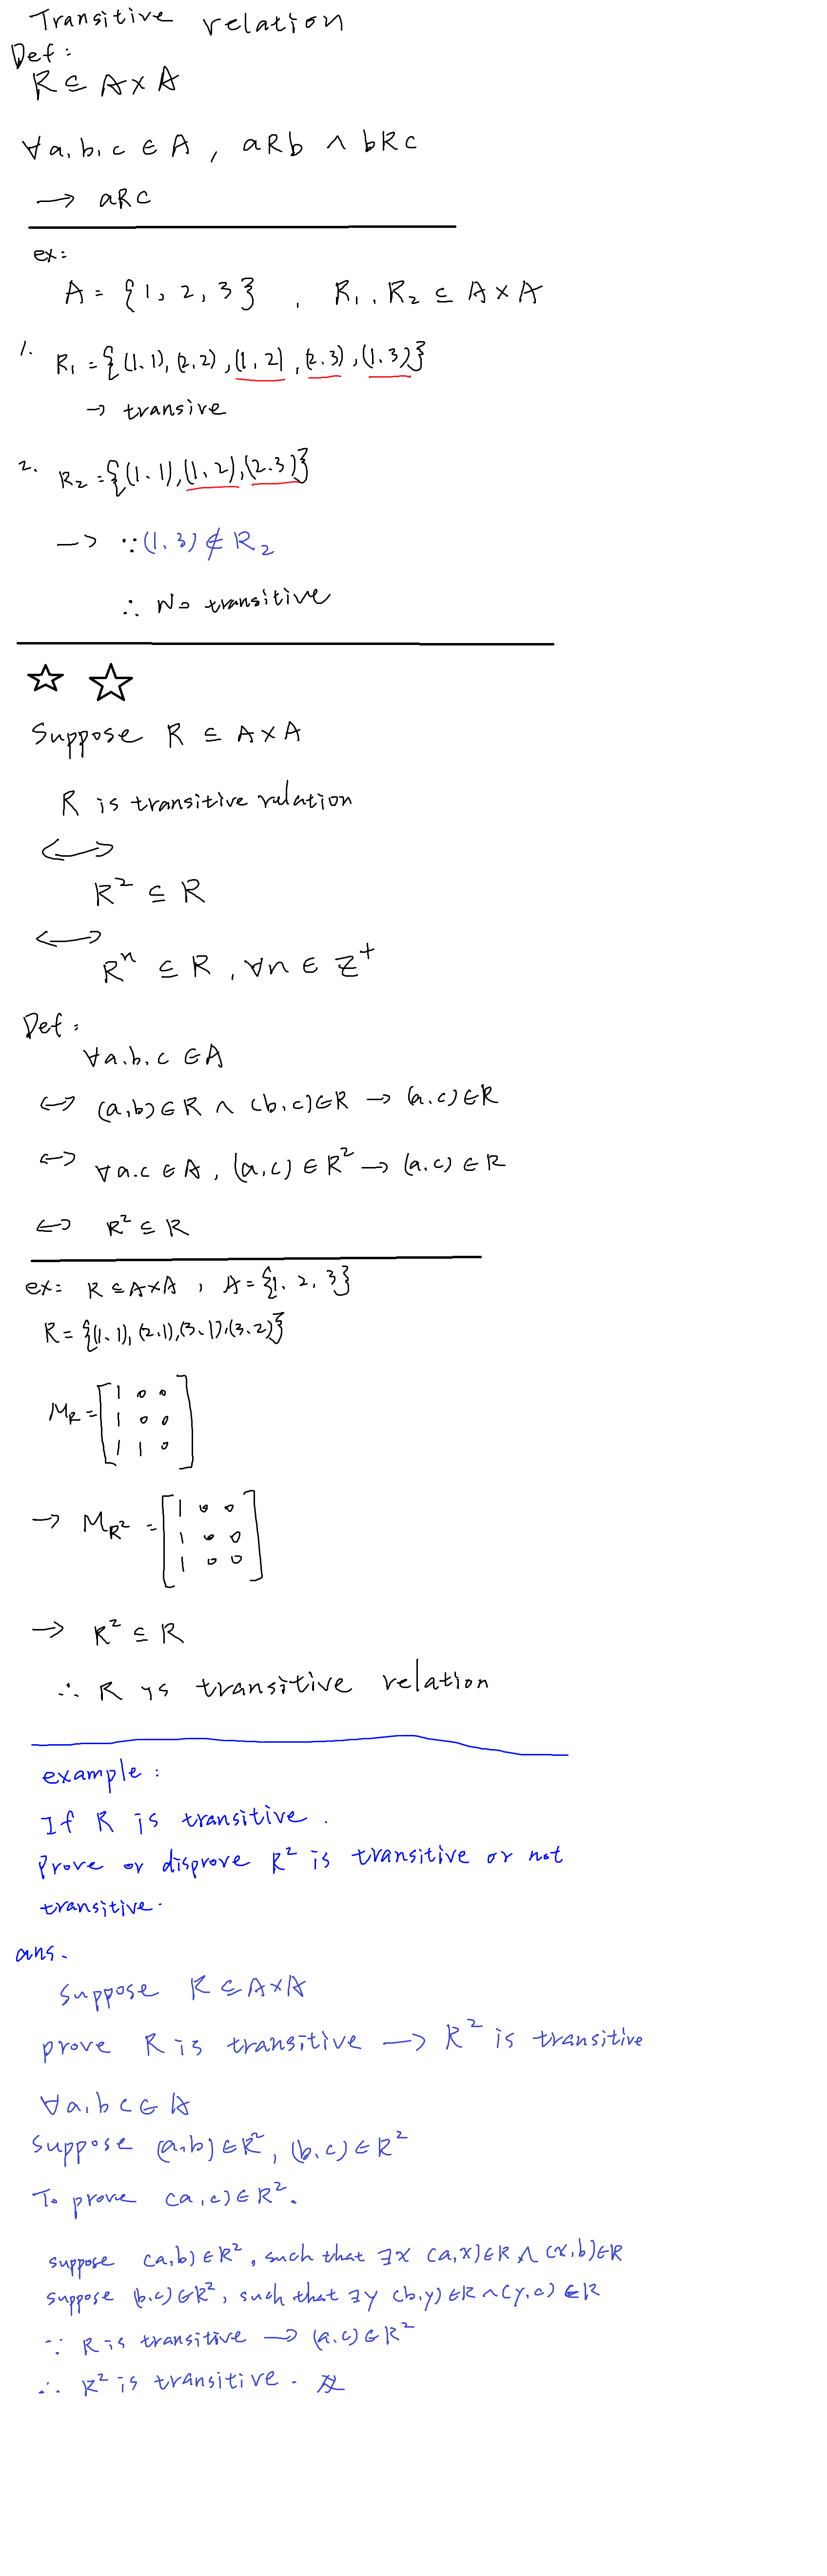 Transitive relation
Def:
R ⊆ A×A
∀a,b,c ∈ A, aRb ∧ bRc
→ aRc
ex:
A = {1, 2, 3}, R₁, R₂ ⊆ A×A
1. R₁ = {(1,1), (2,2), (1,2), (2,3), (1,3)}
→ transive
2. R₂ = {(1,1), (1,2), (2,3)}
→ ∵ (1,3) ∉ R₂
∴ No transitive
☆ ☆
Suppose R ⊆ A×A
R is transitive relation
⟷
R² ⊆ R
⟷
Rⁿ ⊆ R, ∀n ∈ Z⁺
Def:
∀a,b,c ∈ A
↔ (a,b)∈R ∧ (b,c)∈R → (a,c)∈R
↔ ∀a,c ∈ A, (a,c) ∈ R² → (a,c) ∈ R
↔ R² ⊆ R
ex: R ⊆ A×A, A = {1, 2, 3}
R = {(1,1), (2,1), (3,1), (3,2)}
M_R = [1 0 0
1 0 0
1 1 0]
→ M_R² = [1 0 0
1 0 0
1 0 0]
→ R² ⊆ R
∴ R is transitive relation
example:
If R is transitive.
Prove or disprove R² is transitive or not
transitive.
ans.
Suppose R ⊆ A×A
prove R is transitive → R² is transitive
∀a,b c ∈ A
Suppose (a,b) ∈ R², (b,c) ∈ R²
To prove (a,c) ∈ R².
suppose (a,b) ∈ R², such that ∃x (a,x)∈R ∧ (x,b)∈R
suppose (b,c) ∈ R², such that ∃y (b,y) ∈R ∧ (y,c) ∈R
∵ R is transitive → (a,c) ∈ R²
∴ R² is transitive.